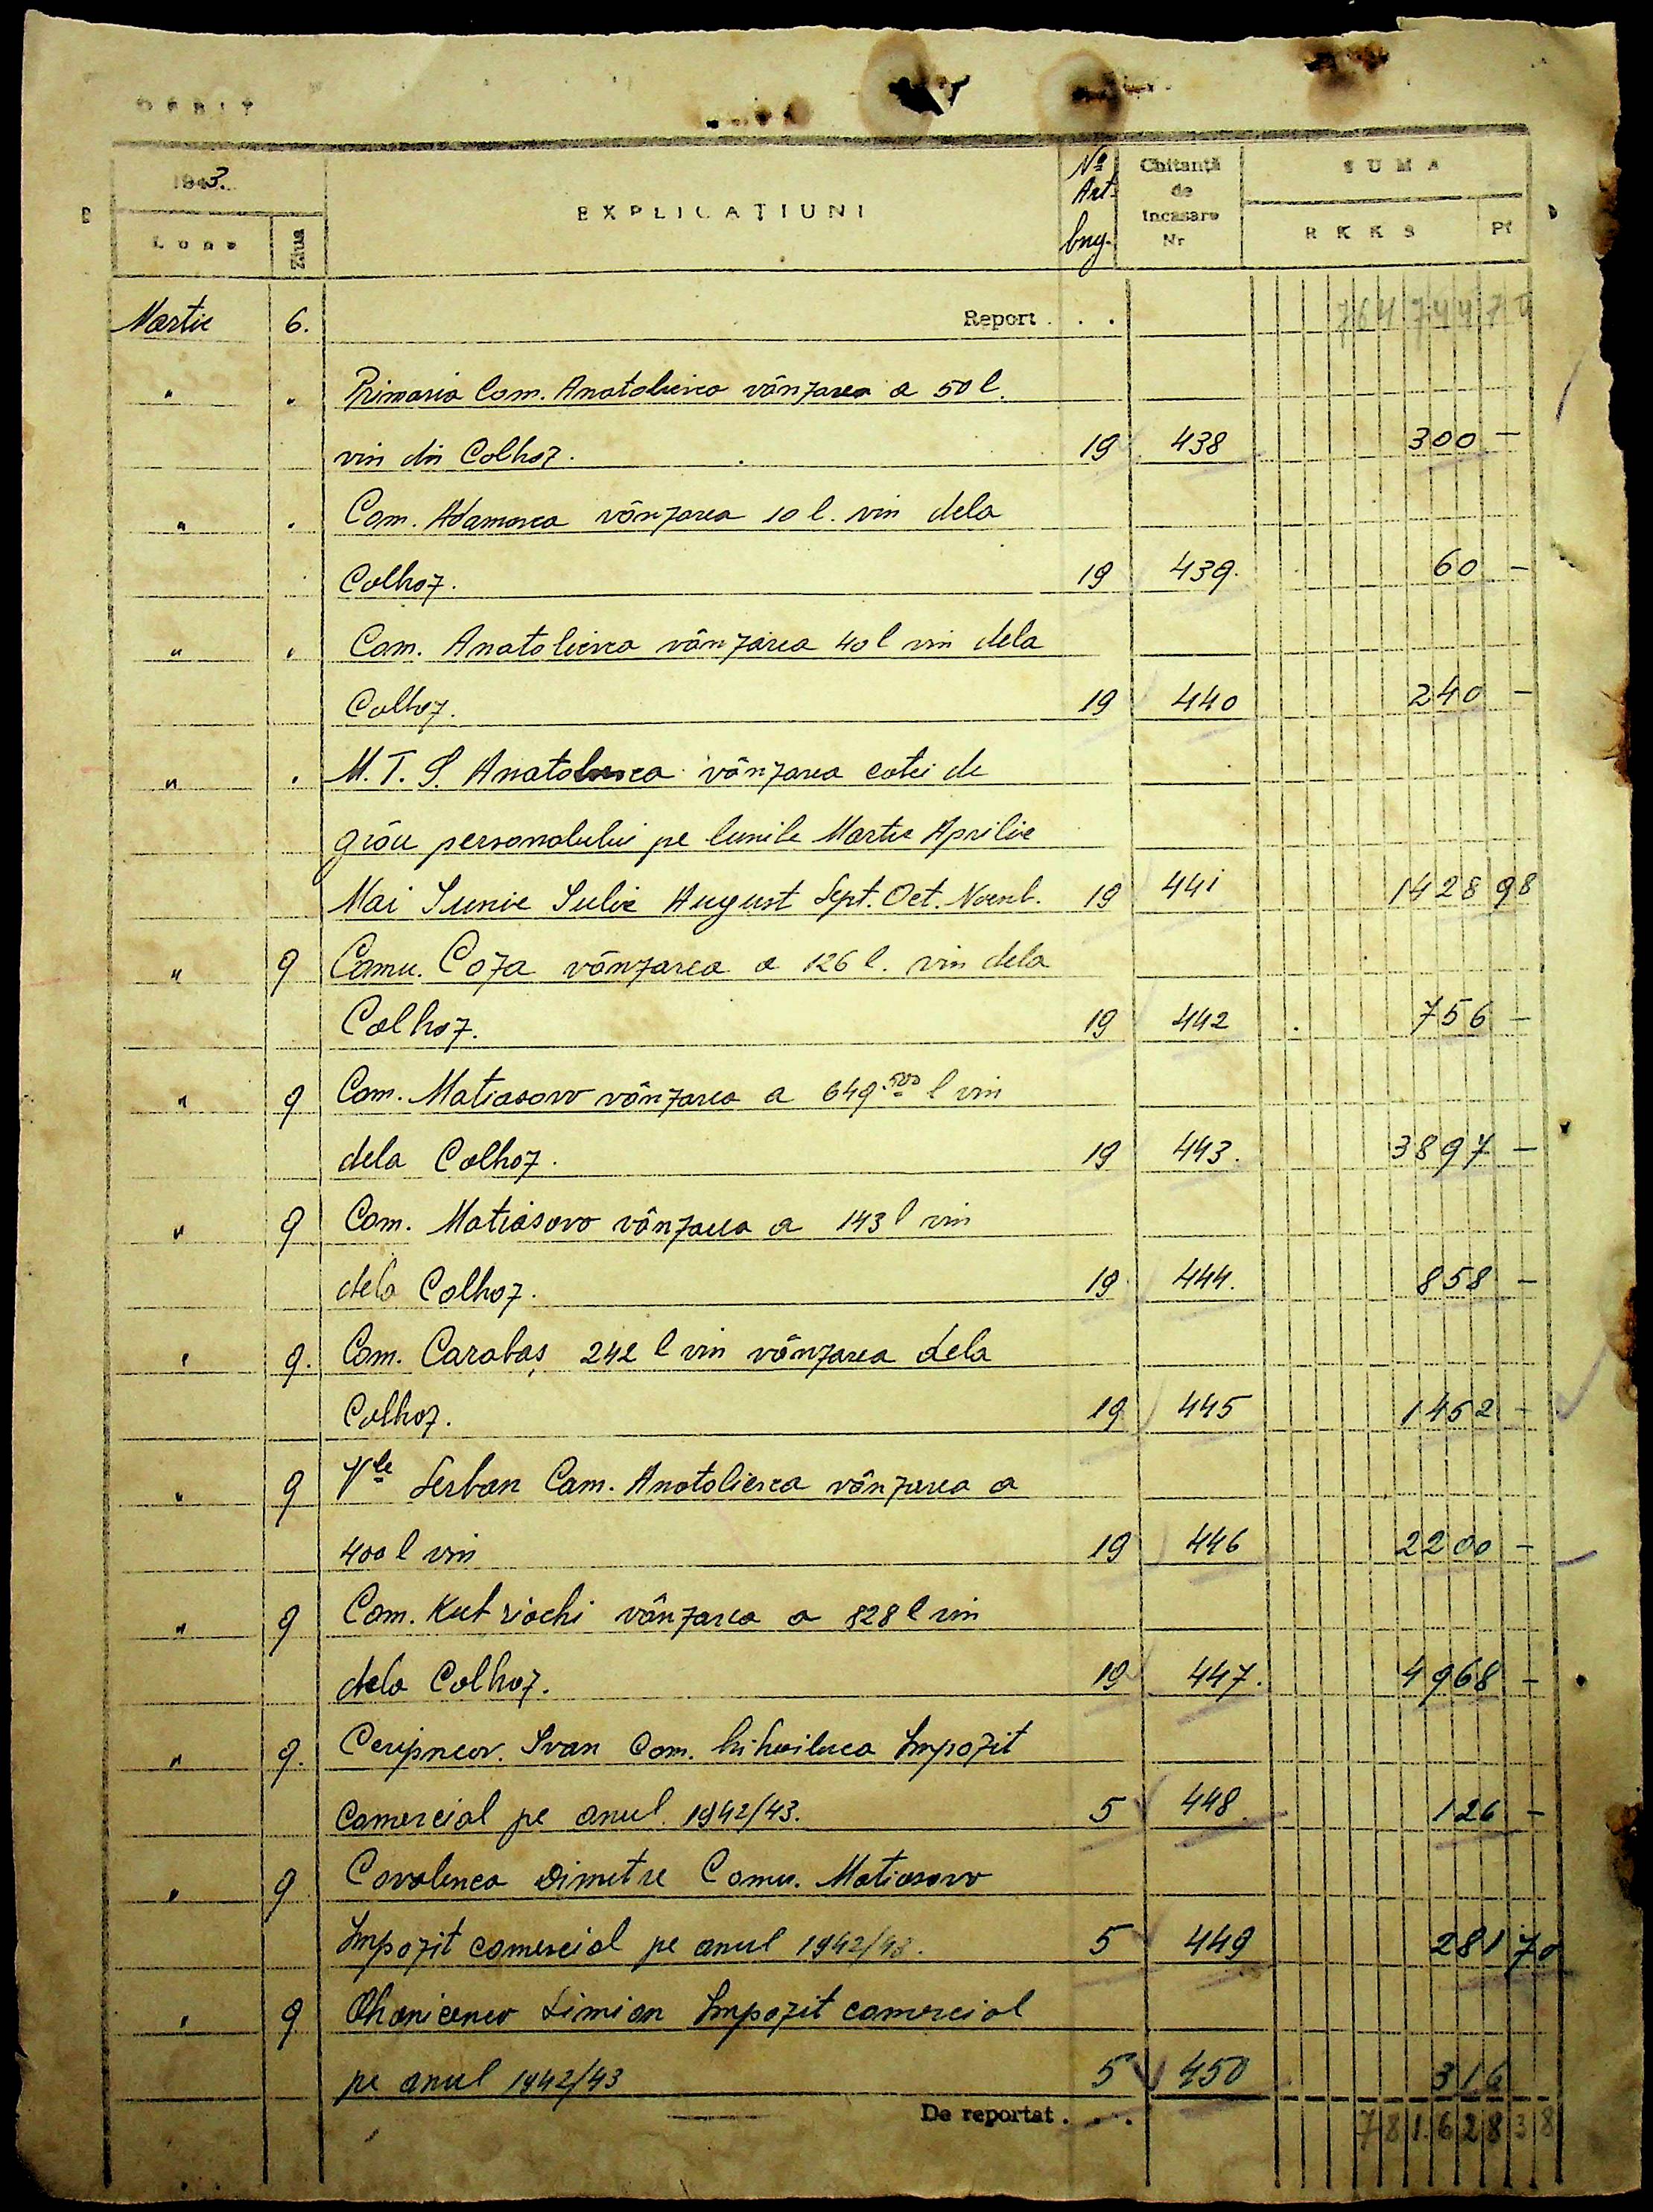 DEBIT
1943.
Luna
Ziua
EXPLICAȚIUNI
No Art. bug.
Chitanță de incasare Nr
SUMA
RKKS
Pf
Martie 6. Report . . . 764744 70
" " Primaria Com. Anatolievca vânzarea a 50 l.
vin din Colhoz. 19 438 300 —
" " Com. Adamovca vânzarea 10 l. vin dela
Colhoz. 19 439. 60 —
" " Com. Anatolievca vânzarea 40 l vin dela
Colhoz. 19 440 240 —
" " M.T.S. Anatolievca vânzarea cotei de
grâu personalului pe lunile Martie Aprilie
Mai Iunie Iulie August Sept. Oct. Noemb. 19 441 1428 98
" 9 Comu. Coza vânzarea a 126 l. vin dela
Colhoz. 19 442 756 —
" 9 Com. Matiasovo vânzarea a 649.500 l vin
dela Colhoz. 19 443. 3897 —
" 9 Com. Matiasovo vânzarea a 143 l vin
dela Colhoz. 19 444. 858 —
" 9. Com. Carabaș 242 l vin vânzarea dela
Colhoz. 19 445 1452 —
" 9 Vle Serban Com. Anatolievca vânzarea a
400 l vin 19 446 2200 —
" 9 Com. Kutriachi vânzarea a 828 l vin
dela Colhoz. 19 447. 4968 —
" 9. Ivan Com. Impozit
comercial pe anul 1942/43. 5 448. 126 —
" 9 Covalenco Dimetre Comu. Matiasovo
Impozit comercial pe anul 1942/43. 5 449 281 70
" 9 Simion Impozit comercial
pe anul 1942/43 5 450 316
De reportat . . . 781628 38